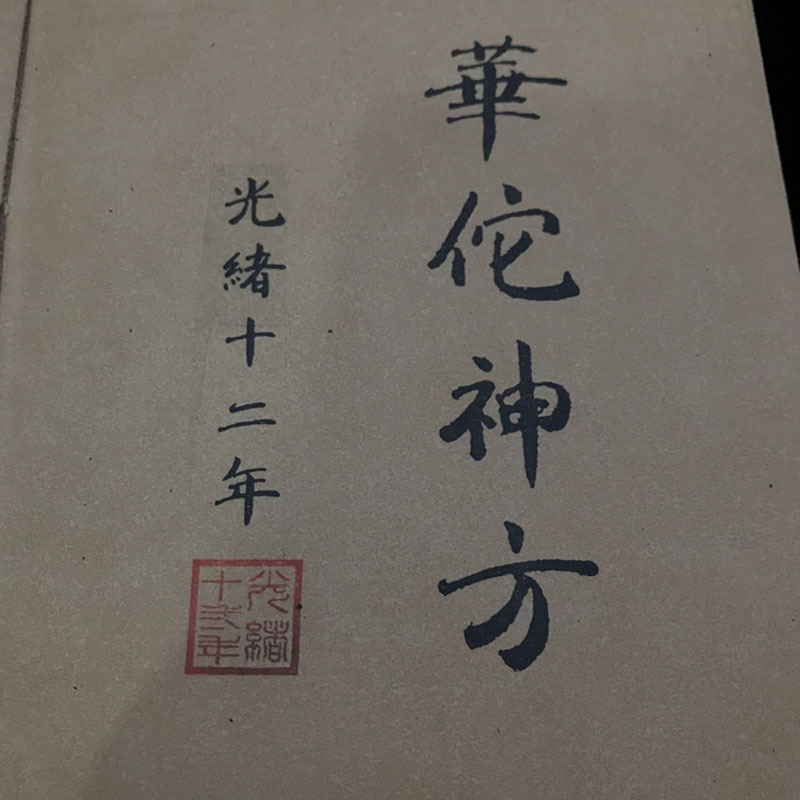 華佗神方
光緒十二年
光緒
十二年